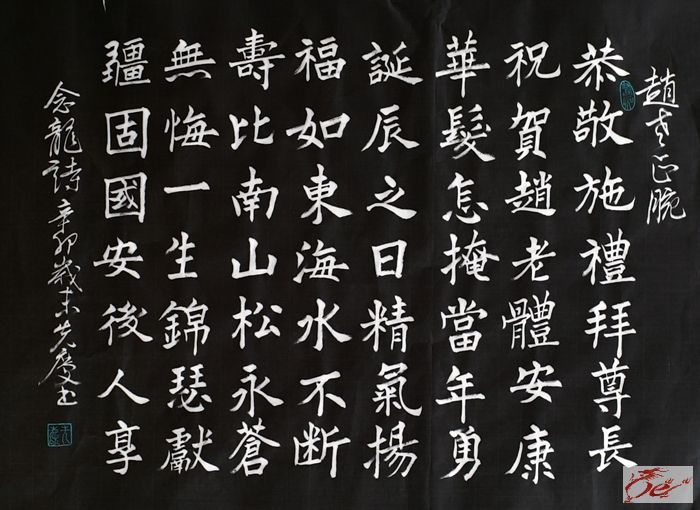 趙老正腕
恭敬施禮拜尊長
祝賀趙老體安康
華髮怎掩當年勇
誕辰之日精氣揚
福如東海水不断
壽比南山松永蒼
無悔一生錦瑟獻
疆固國安後人享
念龍詩辛卯歲末先慶书